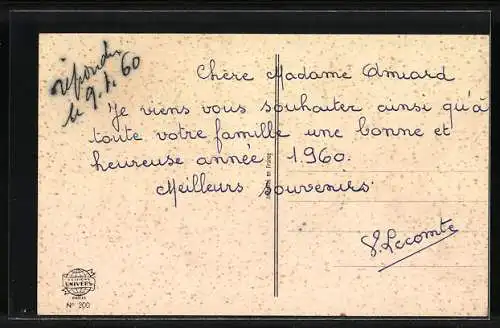 répondu
le 9.1.60
Chère Madame Amiard
Je viens vous souhaiter ainsi qu'à
toute votre famille une bonne et
heureuse année 1960.
Meilleurs souvenirs
Lecomte
UNIVERS
PARIS
N° 200